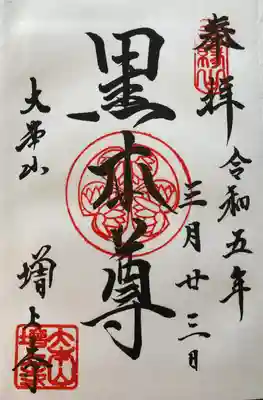 奉拝
令和五年
三月廿三日
黒本尊
大本山
増上寺
大本山
増上寺